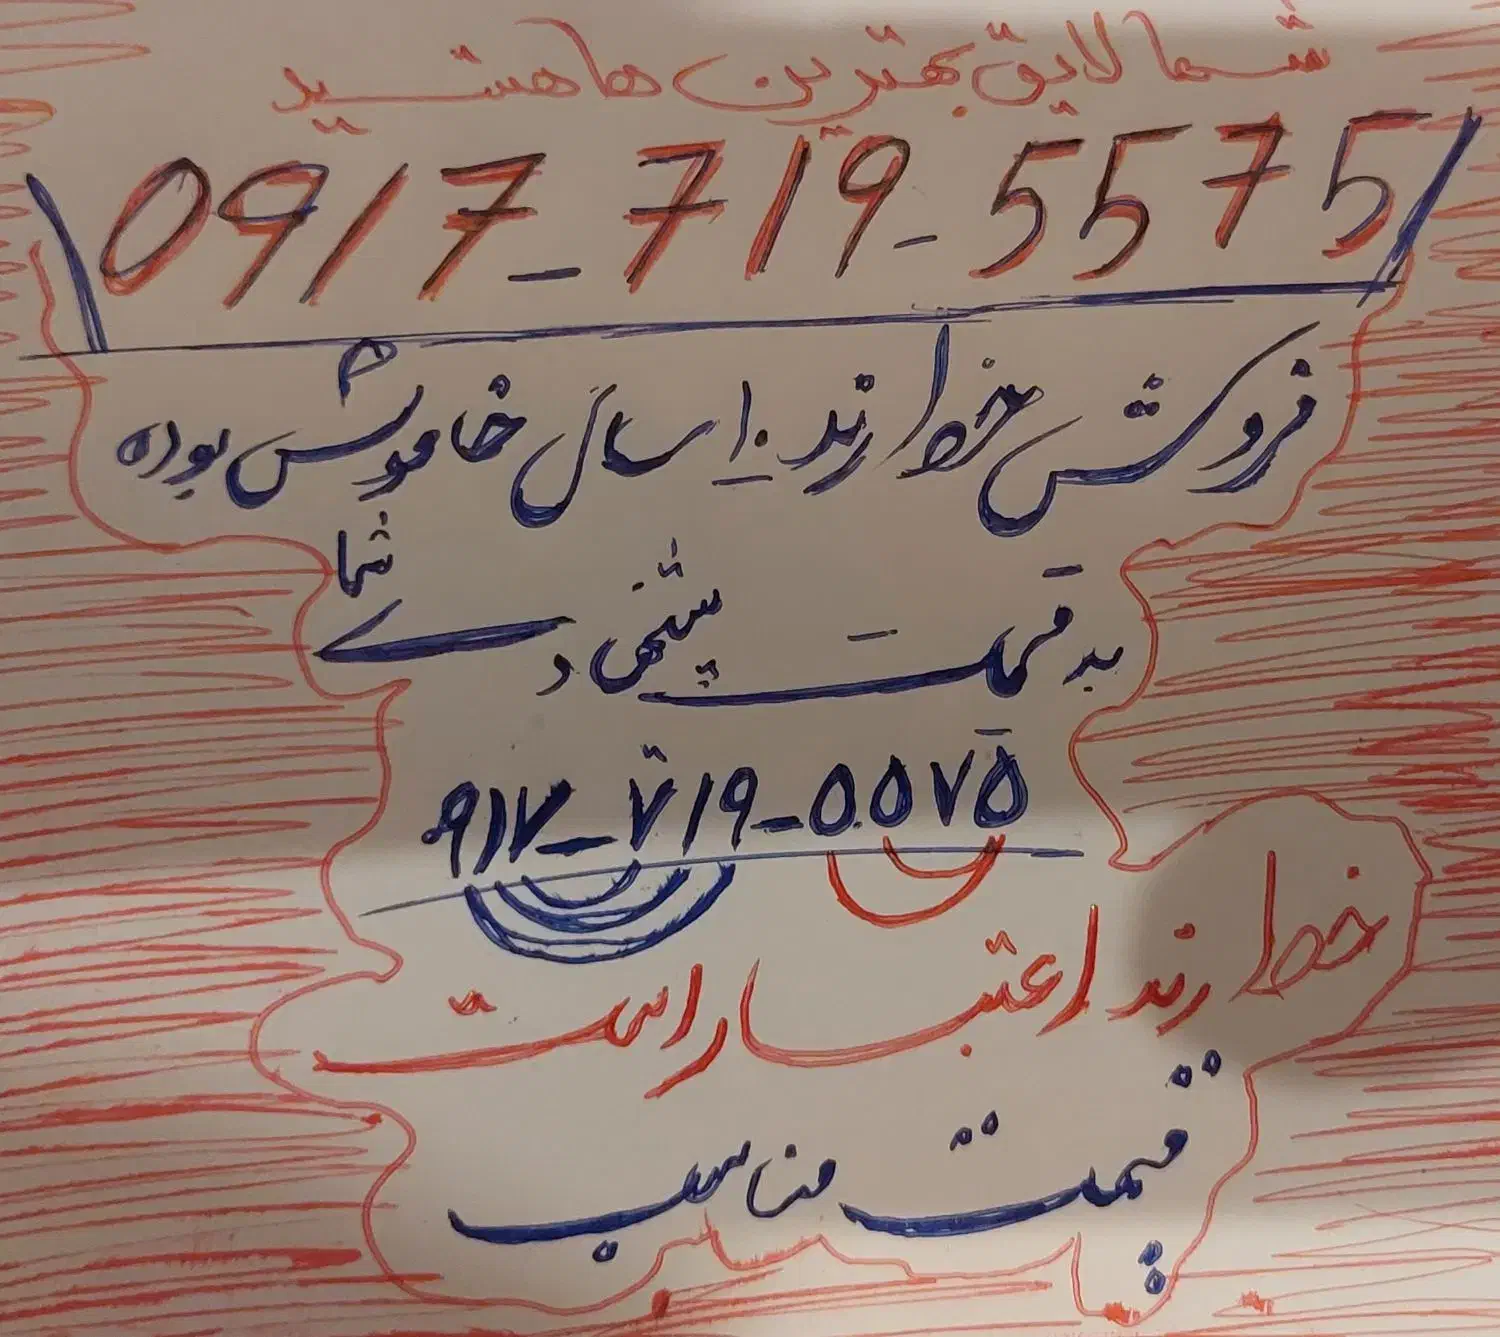 شما لایق بهترین ها هستید
0917_719-5575
فروش خط رند ۱۰ سال خاموش بوده
به قیمت پیشنهادی شما
۰۹۱۷_۷۱۹_۵۵۷۵
خط رند اعتبار است
قیمت مناسب